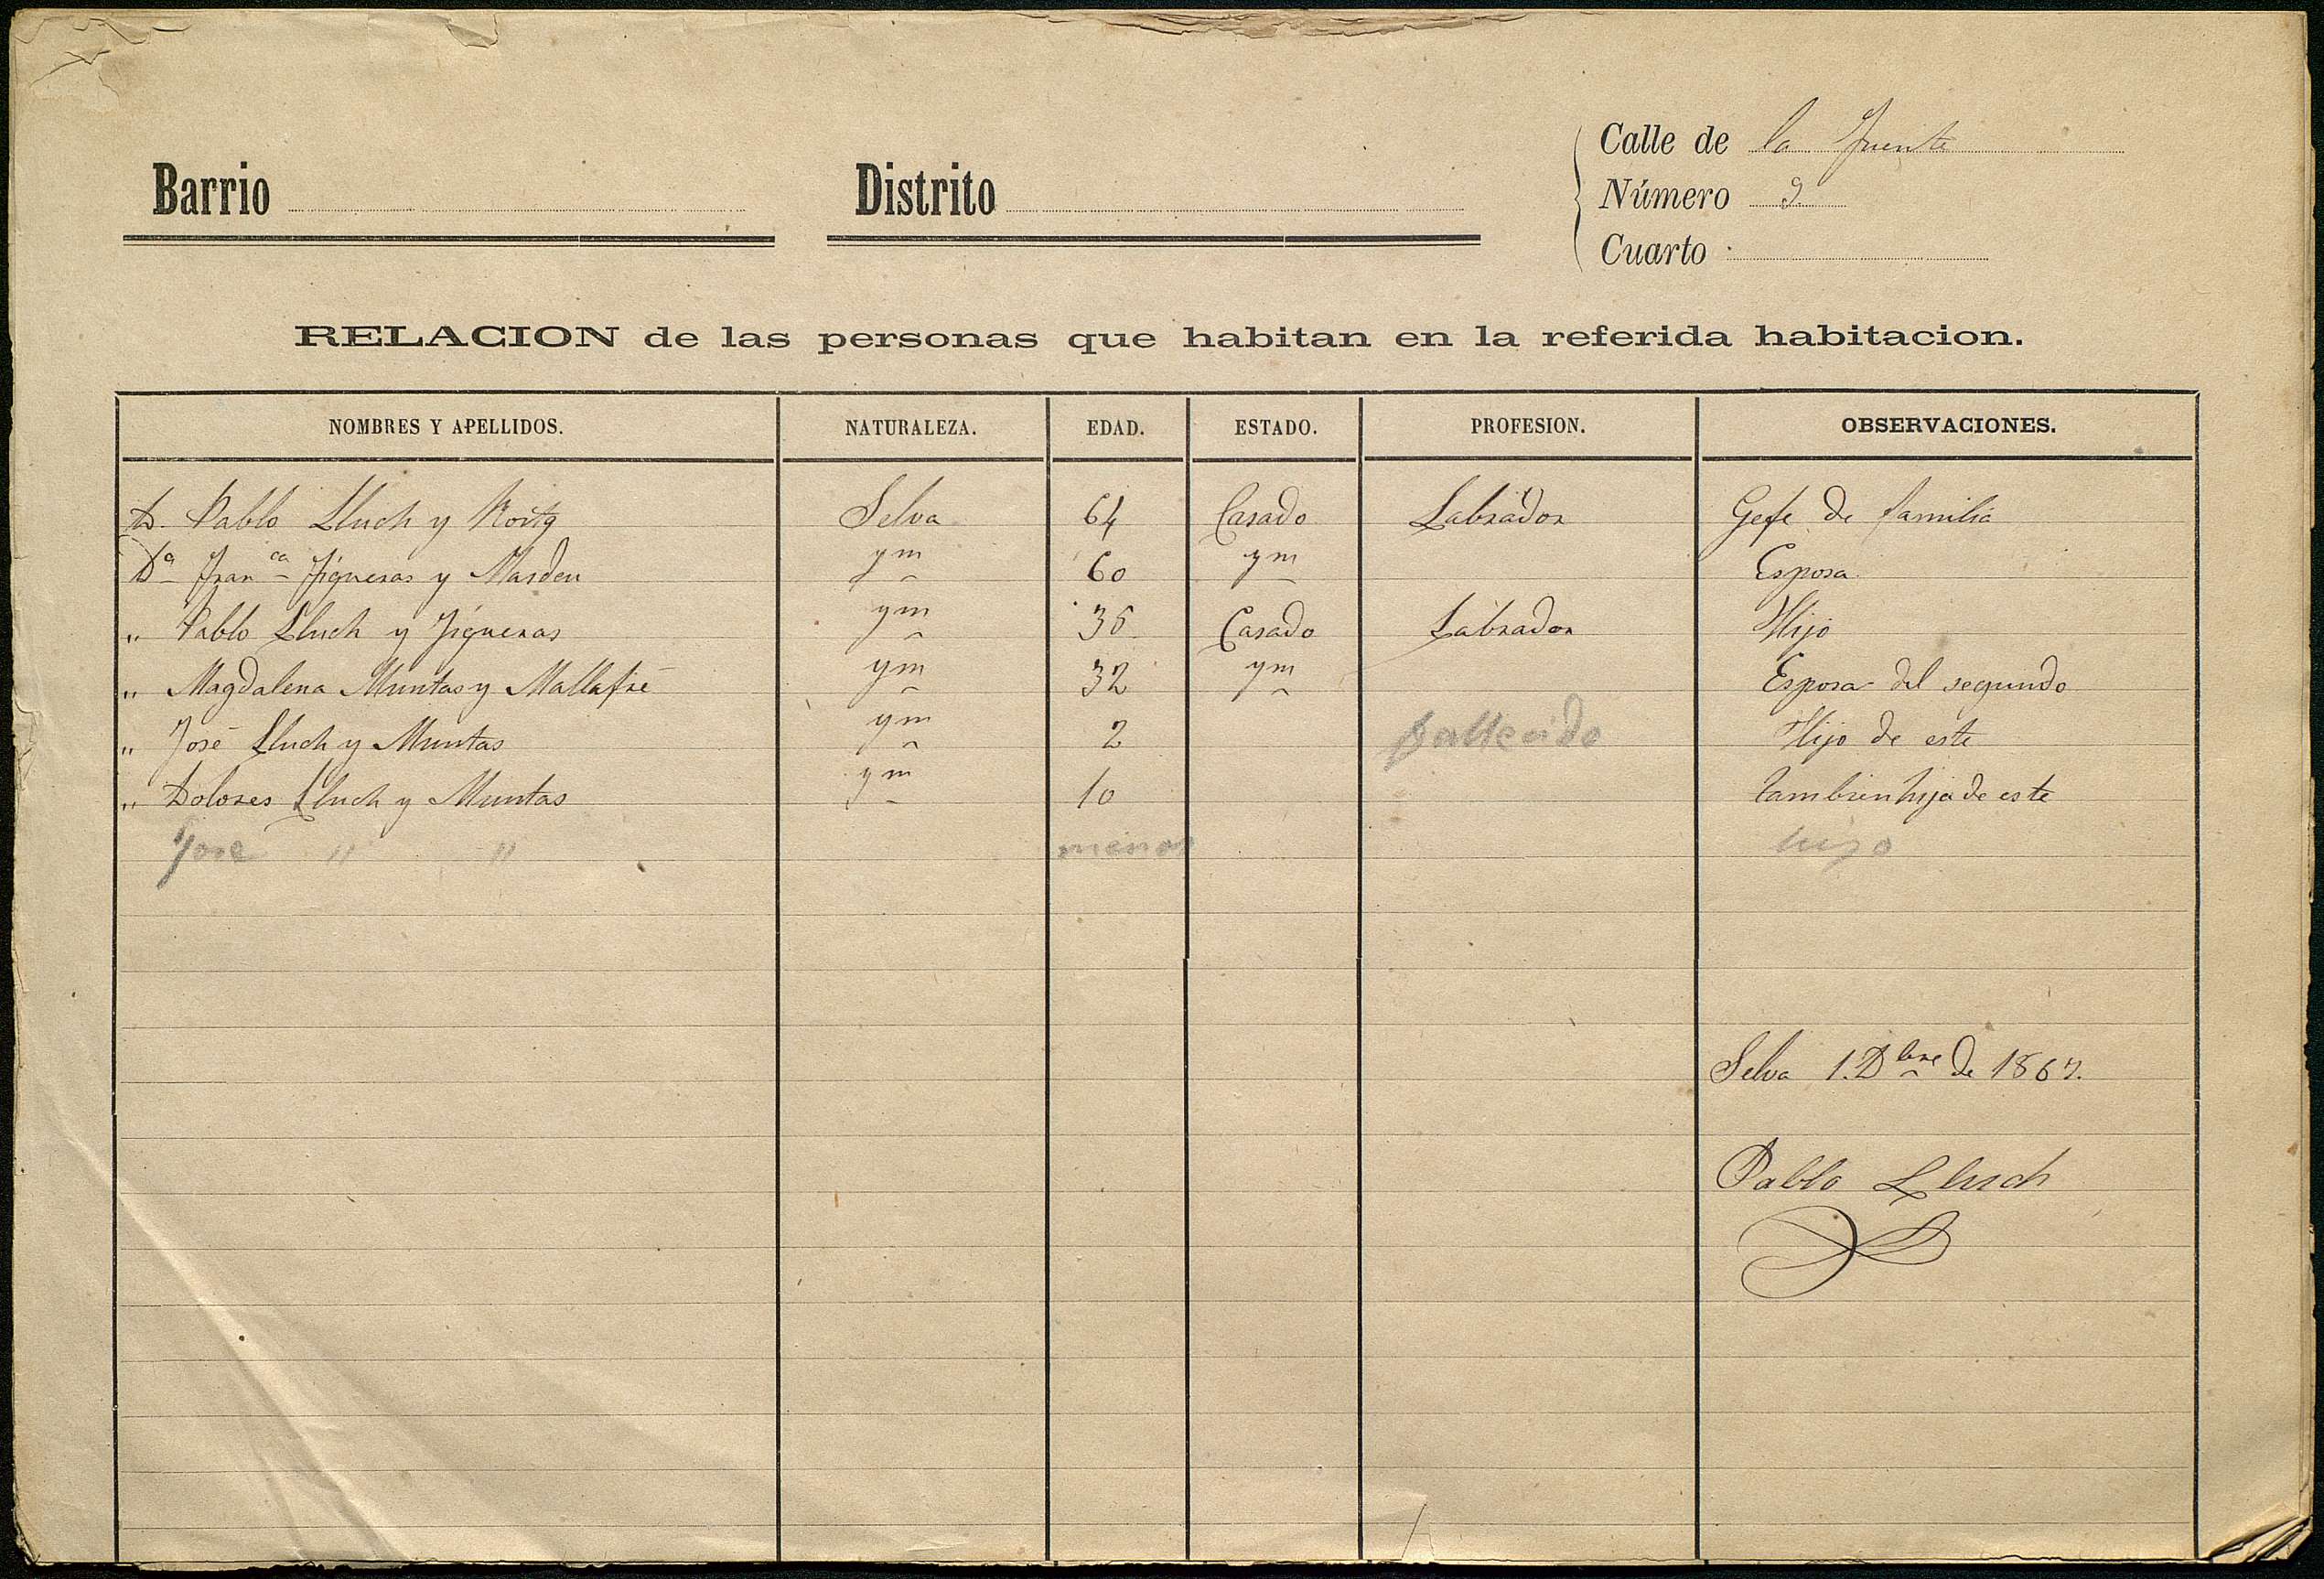 Barrio
Distrito
Calle de la Fuente
Número 9.
Cuarto
RELACION de las personas que habitan en la referida habitacion.
NOMBRES Y APELLIDOS. NATURALEZA. EDAD. ESTADO. PROFESION. OBSERVACIONES.
D. Pablo Lluch y Roitg Selva 64 Casado Labrador Gefe de familia
Dª Franca Figueras y Masdeu ym 60 ym Esposa
" Pablo Lluch y Figueras ym 35 Casado Labrador Hijo
" Magdalena Muntas y Mallafré ym 32 ym Esposa del segundo
" José Lluch y Muntas ym 2 Fallecido Hijo de este
" Dolores Lluch y Muntas ym 10 tambien hija de este
José " " menor hijo
Selva 1. Dbre de 1867.
Pablo Lluch